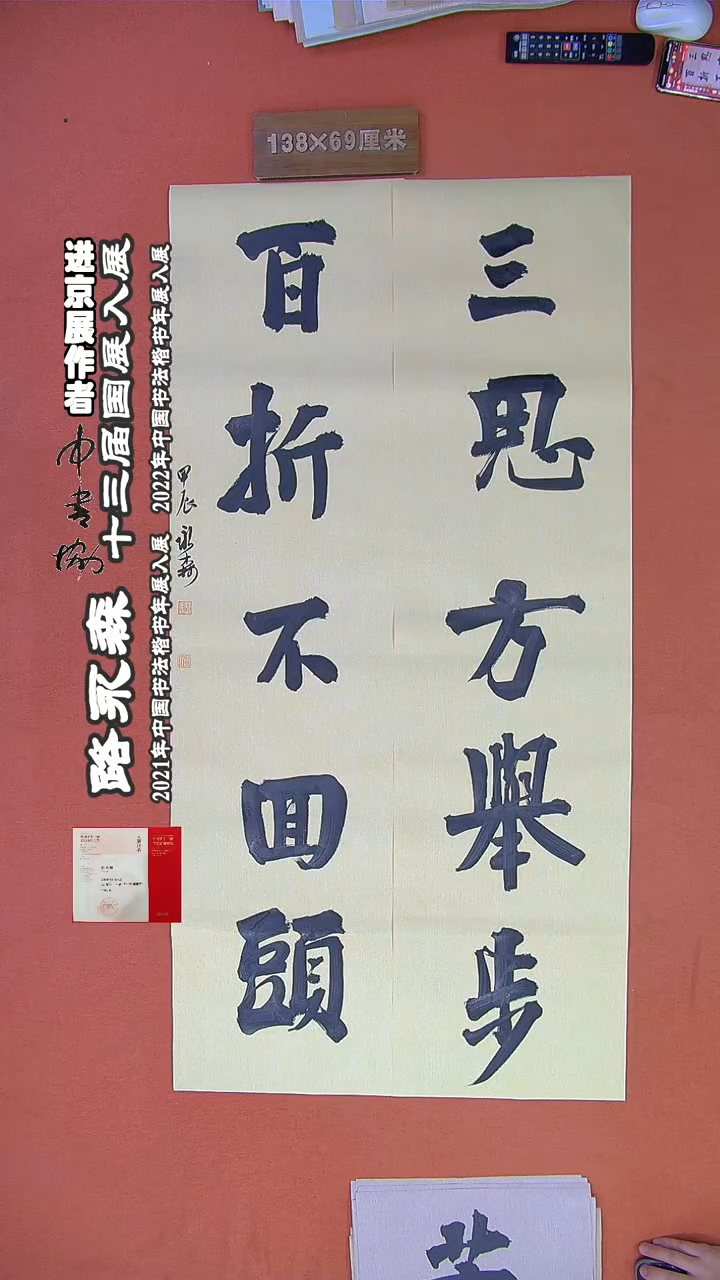 138×69厘米
三思方舉步
百折不回頭
甲辰 永森
中书协
路永森 十三届国展入展
2021年中国书法楷书年展入展 2022年中国书法楷书年展入展